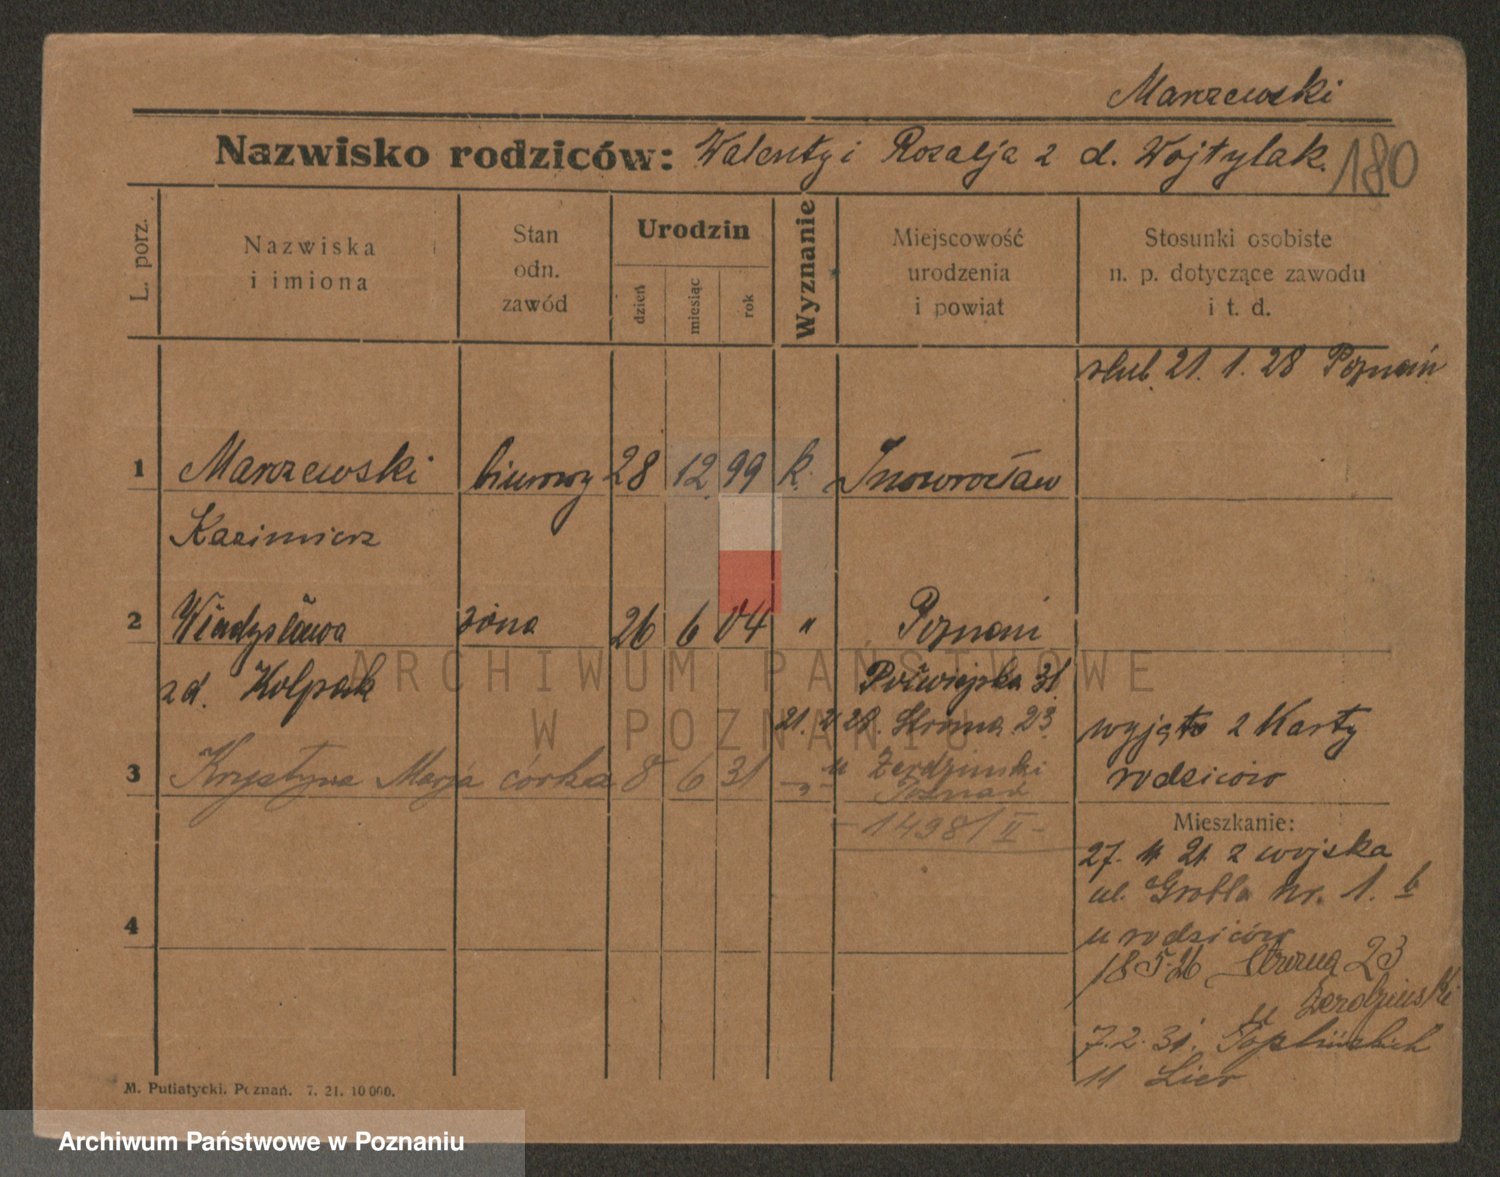 Marszewski
Nazwisko rodziców: Walenty i Rozalja z d. Wojtylak.
180
L. porz.
Nazwiska
i imiona
Stan
odn.
zawód
Urodzin
dzień
miesiąc
rok
Wyznanie
Miejscowość
urodzenia
i powiat
Stosunki osobiste
n. p. dotyczące zawodu
i t. d.
ślub. 21. 1. 28 Poznań
1 Marszewski biurowy 28 12 99 k. Inowrocław
Kazimierz
2 Władysława żona 26 6 04 " Poznań
zd. Kolpak Półwiejska 31
21. 2 28. Stroma 23 wyjęto z Karty
rodziców
3 Krystyna Marja córka 8 6 31 -"- Poznań
- 1498/II -
Mieszkanie:
27. 11. 21. z wojska
ul. Grobla nr. 1. b
u rodziców
18 5-26 23
u
7. 2. 31.
11
4
M. Putiatycki. Poznań. 7. 21. 10 000.
ARCHIWUM PAŃSTWOWE
W POZNANIU
Archiwum Państwowe w Poznaniu